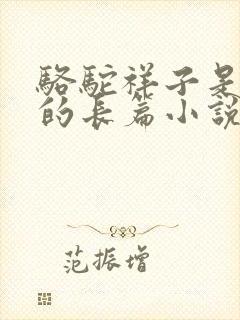 駱駝祥子是
的長篇小說
范振增